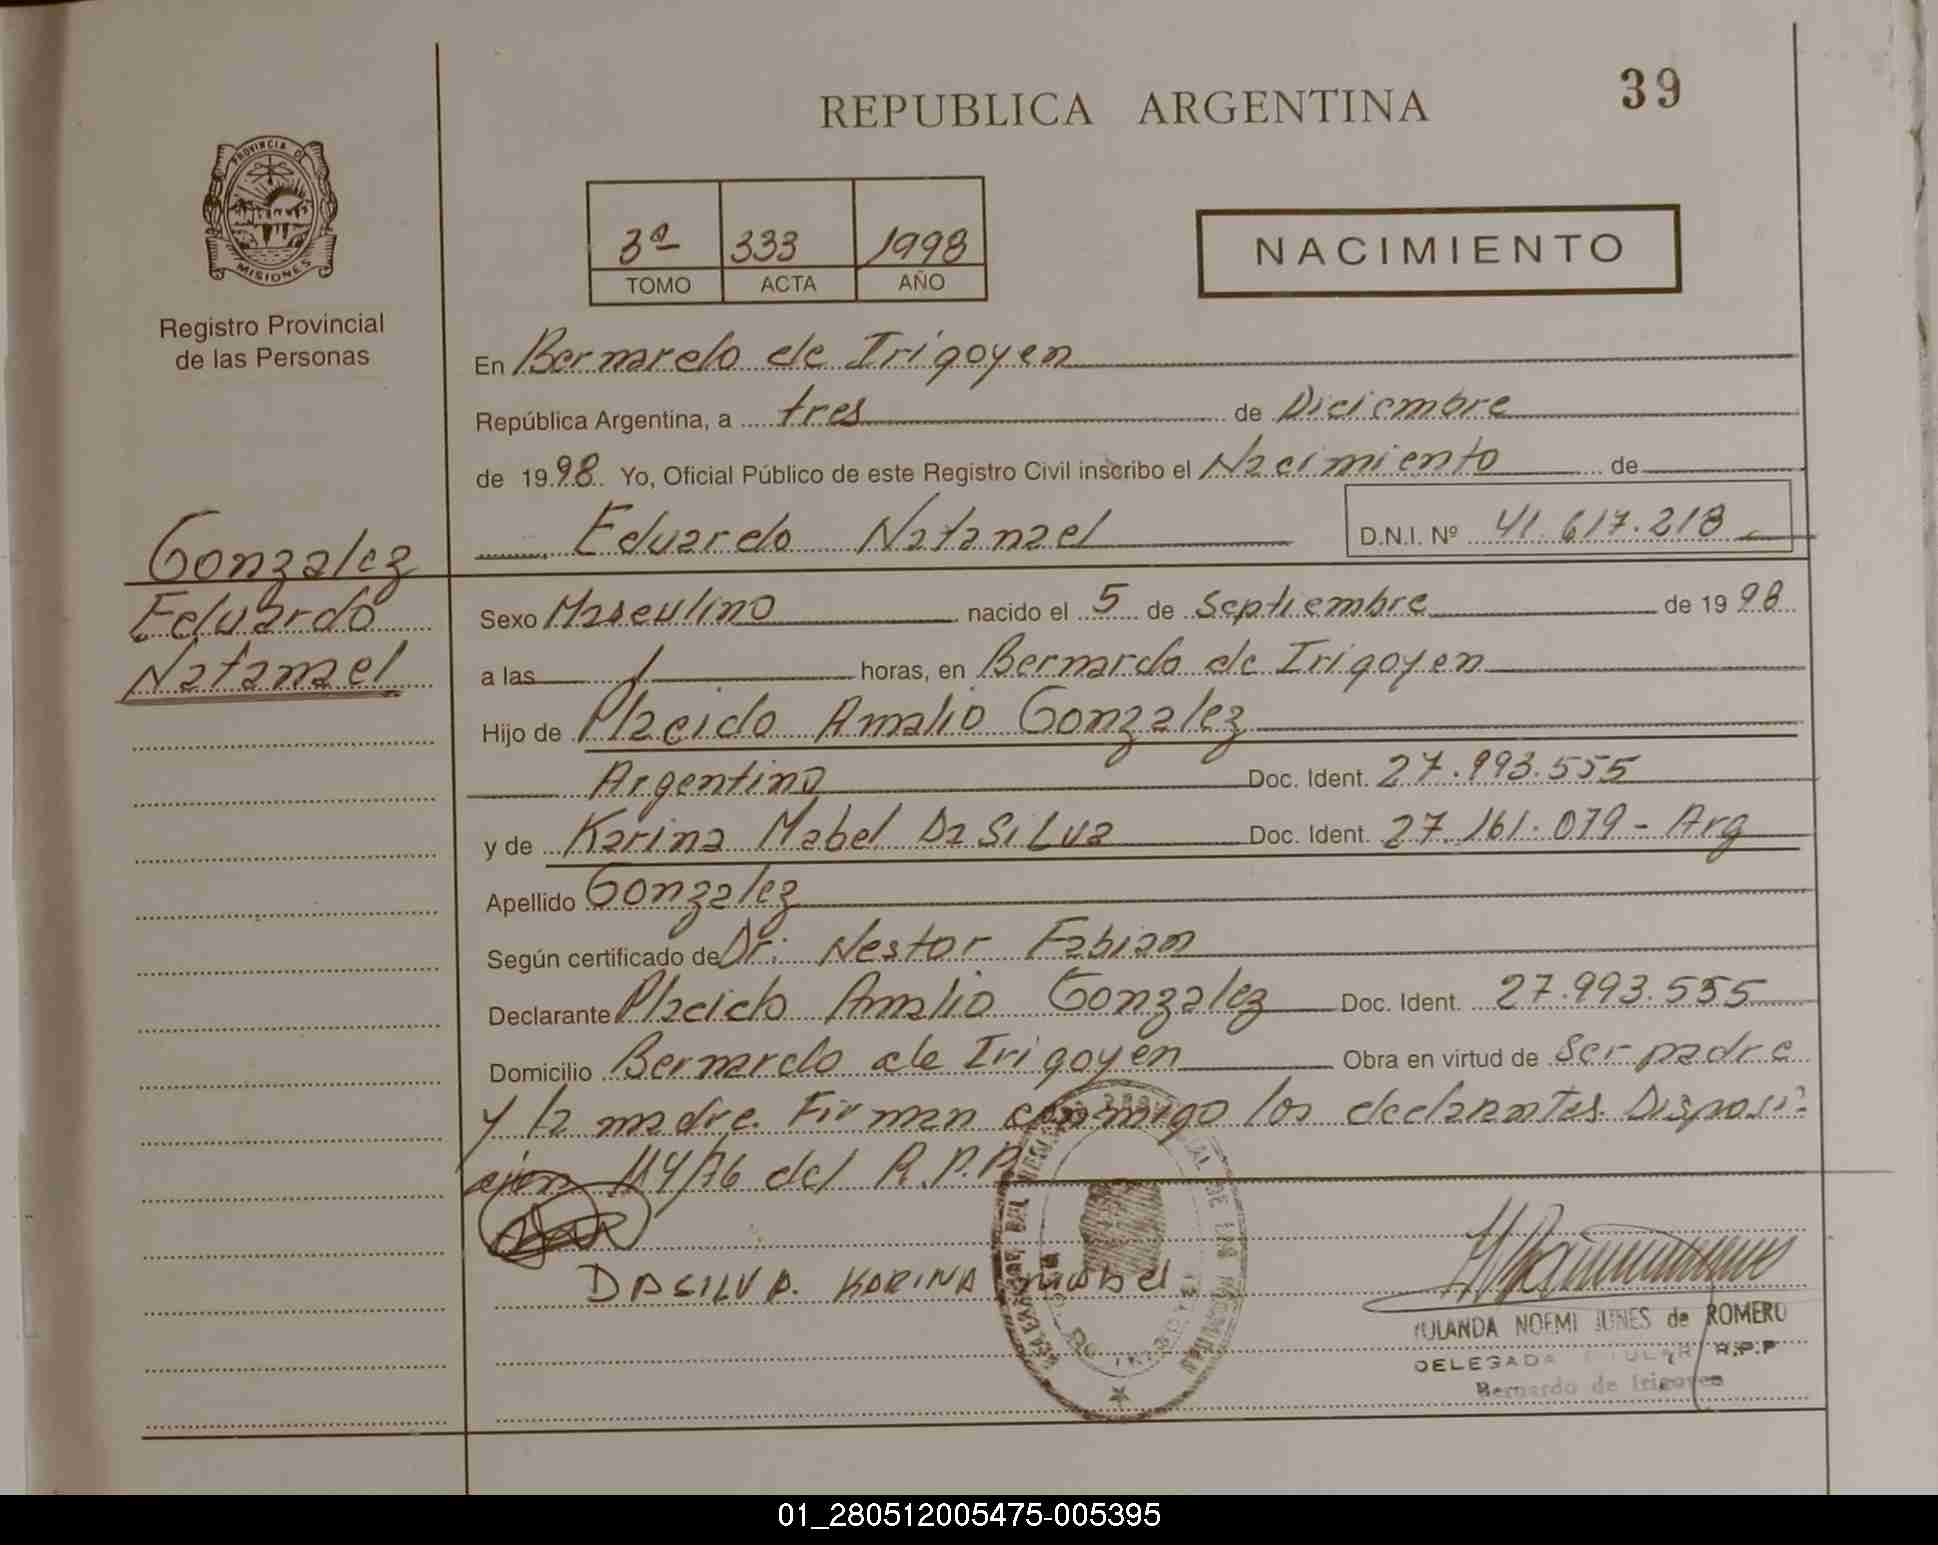 39
REPUBLICA ARGENTINA
PROVINCIA DE
MISIONES
Registro Provincial
de las Personas
3ª 333 1998
TOMO ACTA AÑO
NACIMIENTO
En Bernardo de Irigoyen
República Argentina, a tres de Diciembre
de 1998. Yo, Oficial Público de este Registro Civil inscribo el Nacimiento de
Eduardo Natanael D.N.I. Nº 41.617.218
Gonzalez
Eduardo
Natanael
Sexo Masculino nacido el 5 de Septiembre de 1998
a las 1 horas, en Bernardo de Irigoyen
Hijo de Placido Amalio Gonzalez
Argentino Doc. Ident. 27.993.555
y de Karina Mabel Da Silva Doc. Ident. 27.161.079 - Arg
Apellido Gonzalez
Según certificado de Dr: Nestor Fabian
Declarante Placido Amalio Gonzalez Doc. Ident. 27.993.555
Domicilio Bernardo de Irigoyen Obra en virtud de Ser padre
y la madre. Firman conmigo los declarantes. Disposi-
cion 114/76 del R.P.P.
DASILVA. KARINA mabel
YOLANDA NOEMI JUNES de ROMERO
DELEGADA TITULAR R.P.P
Bernardo de Irigoyen
01_280512005475-005395